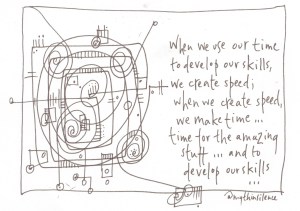 When we use our time
to develop our skills,
we create speed;
when we create speed,
we make time ...
time for the amazing
stuff ... and to
develop our skills
...
@nythinsilence